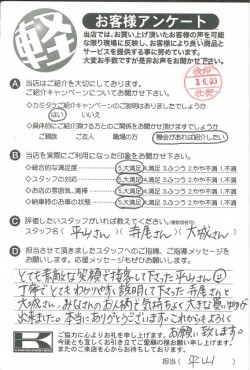 軽
お客様アンケート
当店では、お買い上げ頂いたお客様の声を可能
な限り現場に反映し、お客様により良い商品と
サービスを提供する事に努めています。
大変お手数ですが是非お声をお聞かせ下さい。
A 当店はご紹介を大切にしております。
ご紹介キャンペーンについてお聞かせ下さい。
◇カミタケご紹介キャンペーンのご説明はありましたでしょうか
はい いいえ
◇具体的にご紹介頂ける方とのご関係をお聞かせ頂けますでしょうか
ご親族 ご友人 職場の方 機会があれば紹介したい
B 当店を実際にご利用になった印象をお聞かせ下さい。
◇総合的な満足度 5.大満足 4.満足 3.ふつう 2.やや不満 1.不満
◇スタッフの対応 5.大満足 4.満足 3.ふつう 2.やや不満 1.不満
◇お店の雰囲気、清掃 5.大満足 4.満足 3.ふつう 2.やや不満 1.不満
◇納車時のお車の状態 5.大満足 4.満足 3.ふつう 2.やや不満 1.不満
C 評価したいスタッフがいれば教えてください。
スタッフ名( 平山さん )( 寺尾さん )( 大城さん )
D 担当させて頂きましたスタッフへのご指摘、ご指導メッセージを
お願いします。応援メッセージもぜひお願いします。
とても素敵な笑顔で接客して下さった平山さん
丁寧でとてもわかりやすく説明して下さった寺尾さんと
大城さん。みなさんのお人柄で気持ちよく大きな買い物が
出来ました。本当にありがとうございます。これからもよろしく
お願い致します。
K
ご協力に心よりお礼を申し上げます。
今後とも宜しくお引き立てご愛顧の程お願い申し上げます。
またのご来店を心からお待ちしております。
担当( 平山 )